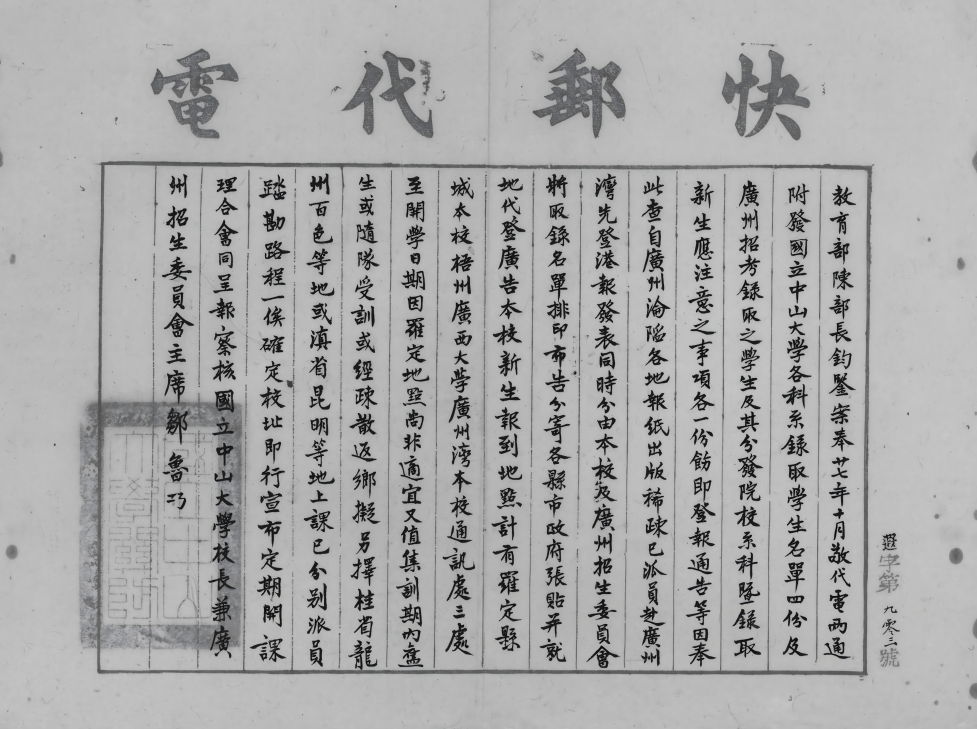 快郵代電
教育部陳部長鈞鑒案奉廿七年十月敬代電兩通
附發國立中山大學各科系錄取學生名單四份及
廣州招考錄取之學生及其分發院校系科暨錄取
新生應注意之事項各一份飭即登報通告等因奉
此查自廣州淪陷各地報紙出版稀疎已派員赴廣州
灣先登港報發表同時分由本校及廣州招生委員會
將取錄名單排印布告分寄各縣市政府張貼并就
地代登廣告本校新生報到地點計有羅定縣
城本校梧州廣西大學廣州灣本校通訊處三處
至開學日期因羅定地點尚非適宜又值集訓期內舊
生或隨隊受訓或經疎散返鄉擬另擇桂省龍
州百色等地或滇省昆明等地上課已分別派員
踏勘路程一俟確定校址即行宣布定期開課
理合會同呈報察核國立中山大學校長兼廣
州招生委員會主席鄒魯巧
字第九零三號